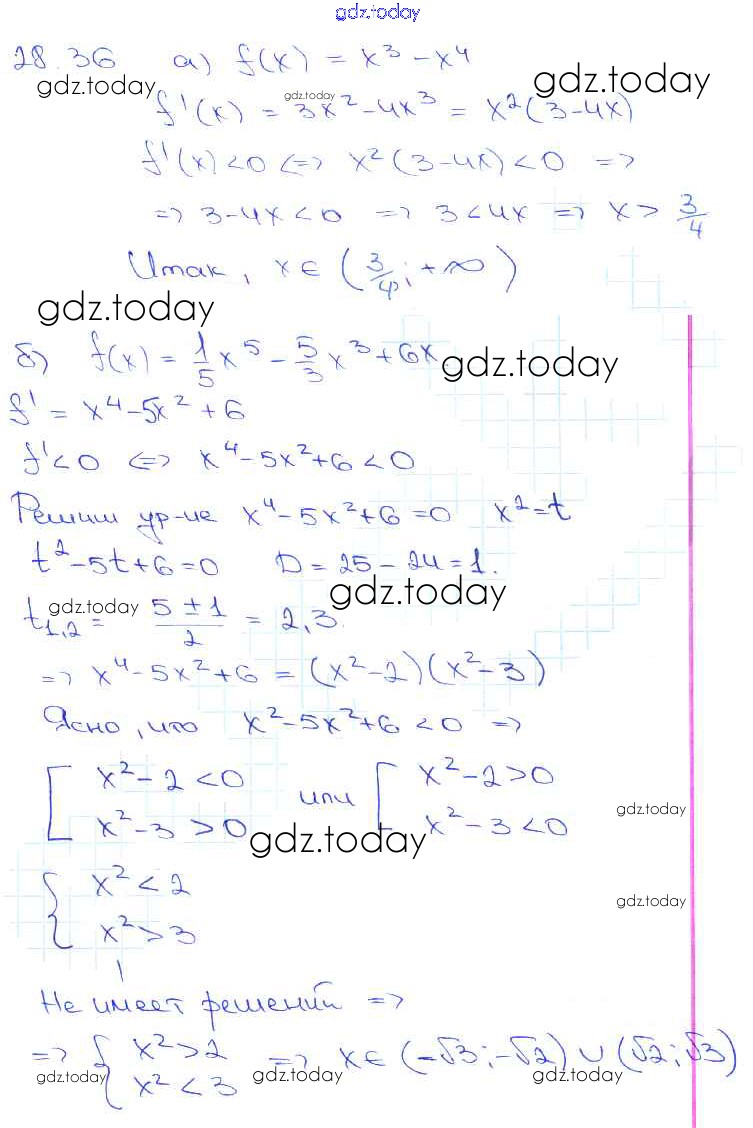 gdz.today
28.36 а) f(x) = x³ – x⁴
gdz.today gdz.today gdz.today
f'(x) = 3x² – 4x³ = x²(3 – 4x)
f'(x) < 0 <=> x²(3 – 4x) < 0 =>
=> 3 – 4x < 0 => 3 < 4x => x > 3/4
Итак, x ∈ (3/4; +∞)
gdz.today
б) f(x) = 1/5 x⁵ – 5/3 x³ + 6x
gdz.today
f' = x⁴ – 5x² + 6
f' < 0 <=> x⁴ – 5x² + 6 < 0
Решим ур-ие x⁴ – 5x² + 6 = 0 x² = t
t² – 5t + 6 = 0 D = 25 – 24 = 1.
gdz.today gdz.today
t₁,₂ = (5 ± 1)/2 = 2, 3.
=> x⁴ – 5x² + 6 = (x² – 2)(x² – 3)
Ясно, что x² – 5x² + 6 < 0 =>
[ x² – 2 < 0 или [ x² – 2 > 0
x² – 3 > 0 x² – 3 < 0
gdz.today
gdz.today
{ x² < 2
gdz.today
x² > 3
Не имеет решений =>
=> { x² > 2 => x ∈ (–√3; –√2) ∪ (√2; √3)
x² < 3
gdz.today gdz.today gdz.today